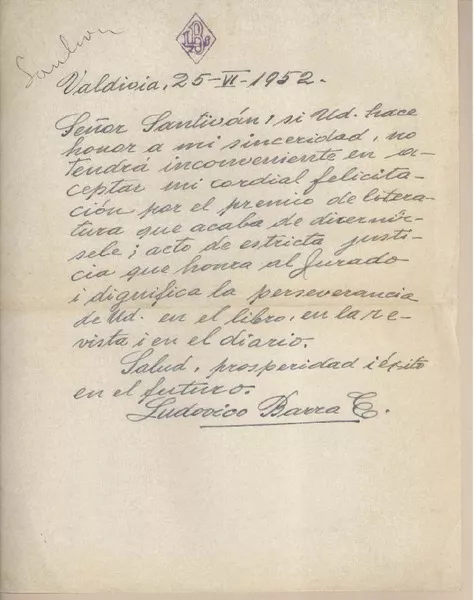 Santiván
Valdivia, 25-VI-1952.
Señor Santiván: si Ud. hace
honor a mi sinceridad, no
tendrá inconveniente en a-
ceptar mi cordial felicita-
ción por el premio de litera-
tura que acaba de discernír-
sele; acto de estricta justi-
cia que honra al Jurado
i dignifica la perseverancia
de Ud. en el libro, en la re-
vista i en el diario.
Salud, prosperidad i éxito
en el futuro.
Ludovico Barra C.